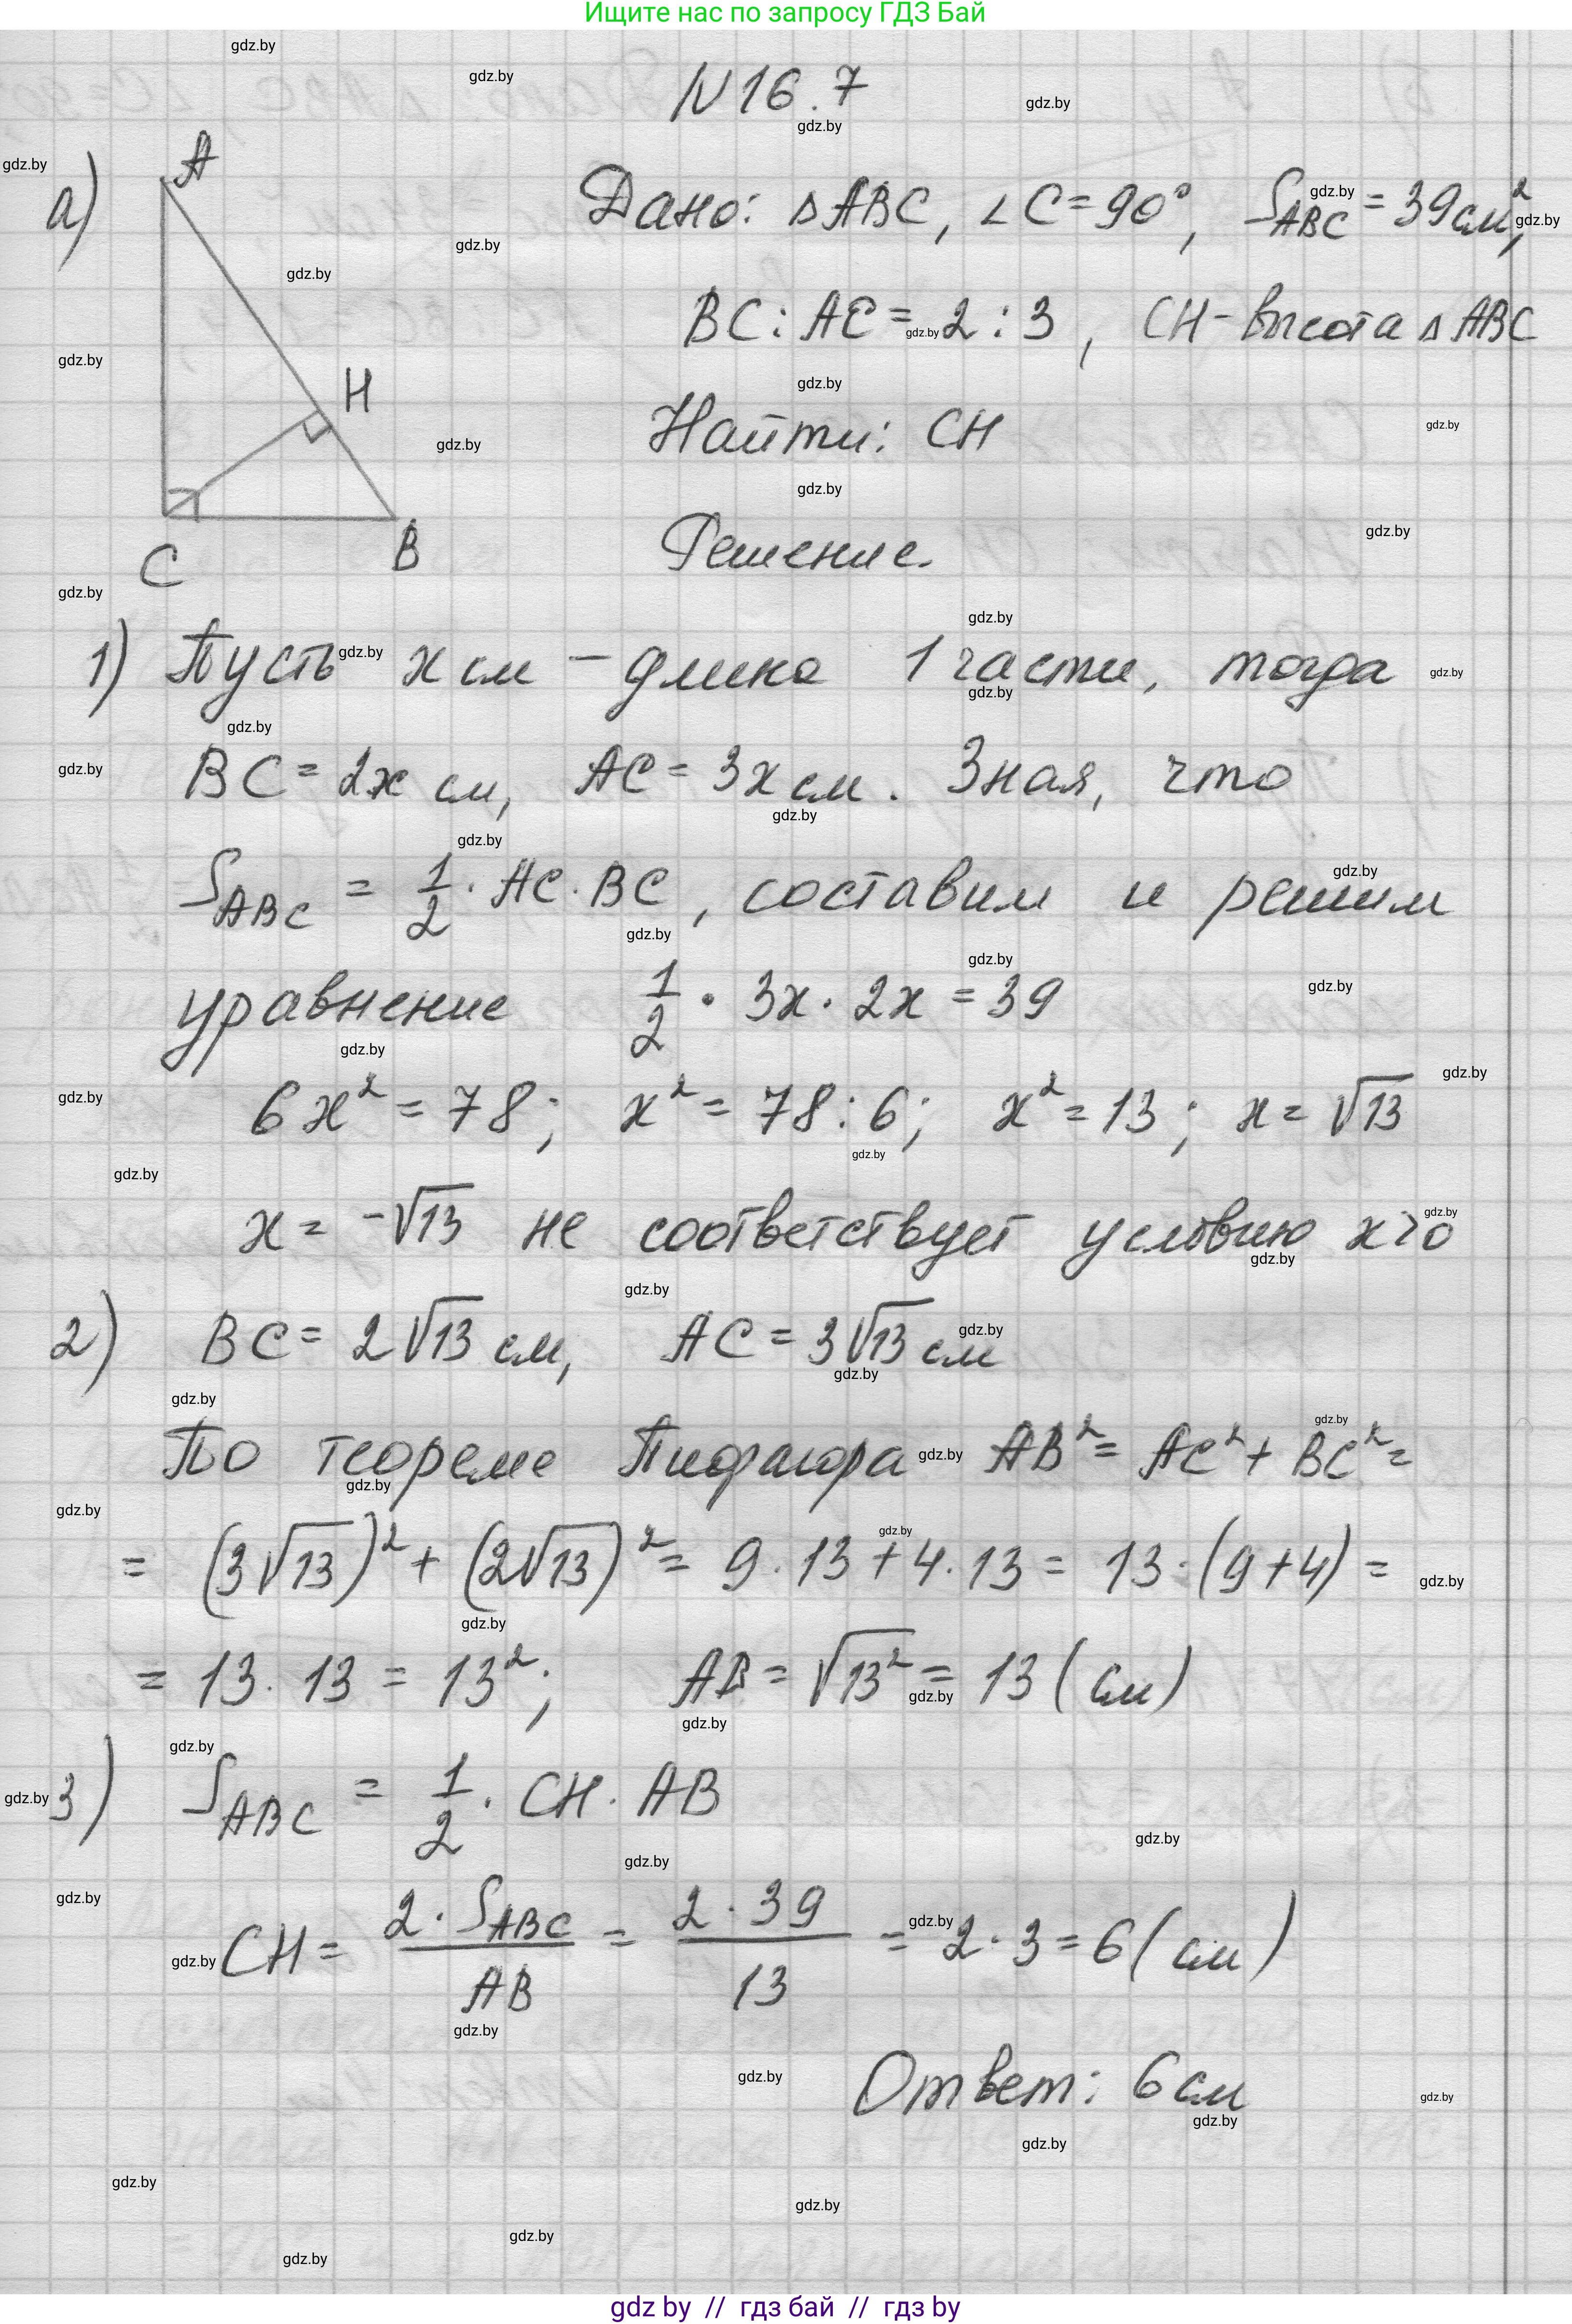 Ищите нас по запросу ГДЗ Бай
N16.7
а)
A
H
C
B
Дано: ΔABC, ∠C=90°, S_ABC = 39см²,
BC:AC = 2:3, CH - высота ΔABC
Найти: CH
Решение.
1) Пусть x см - длина 1 части, тогда
BC = 2x см, AC = 3x см. Зная, что
S_ABC = 1/2 · AC · BC, составим и решим
уравнение 1/2 · 3x · 2x = 39
6x² = 78; x² = 78:6; x² = 13; x = √13
x = -√13 не соответствует условию x>0
2) BC = 2√13 см, AC = 3√13 см
По теореме Пифагора AB² = AC² + BC² =
= (3√13)² + (2√13)² = 9·13 + 4·13 = 13·(9+4) =
= 13·13 = 13²; AB = √13² = 13 (см)
3) S_ABC = 1/2 · CH · AB
CH = 2·S_ABC/AB = 2·39/13 = 2·3 = 6 (см)
Ответ: 6 см
gdz by // гдз бай // гдз by